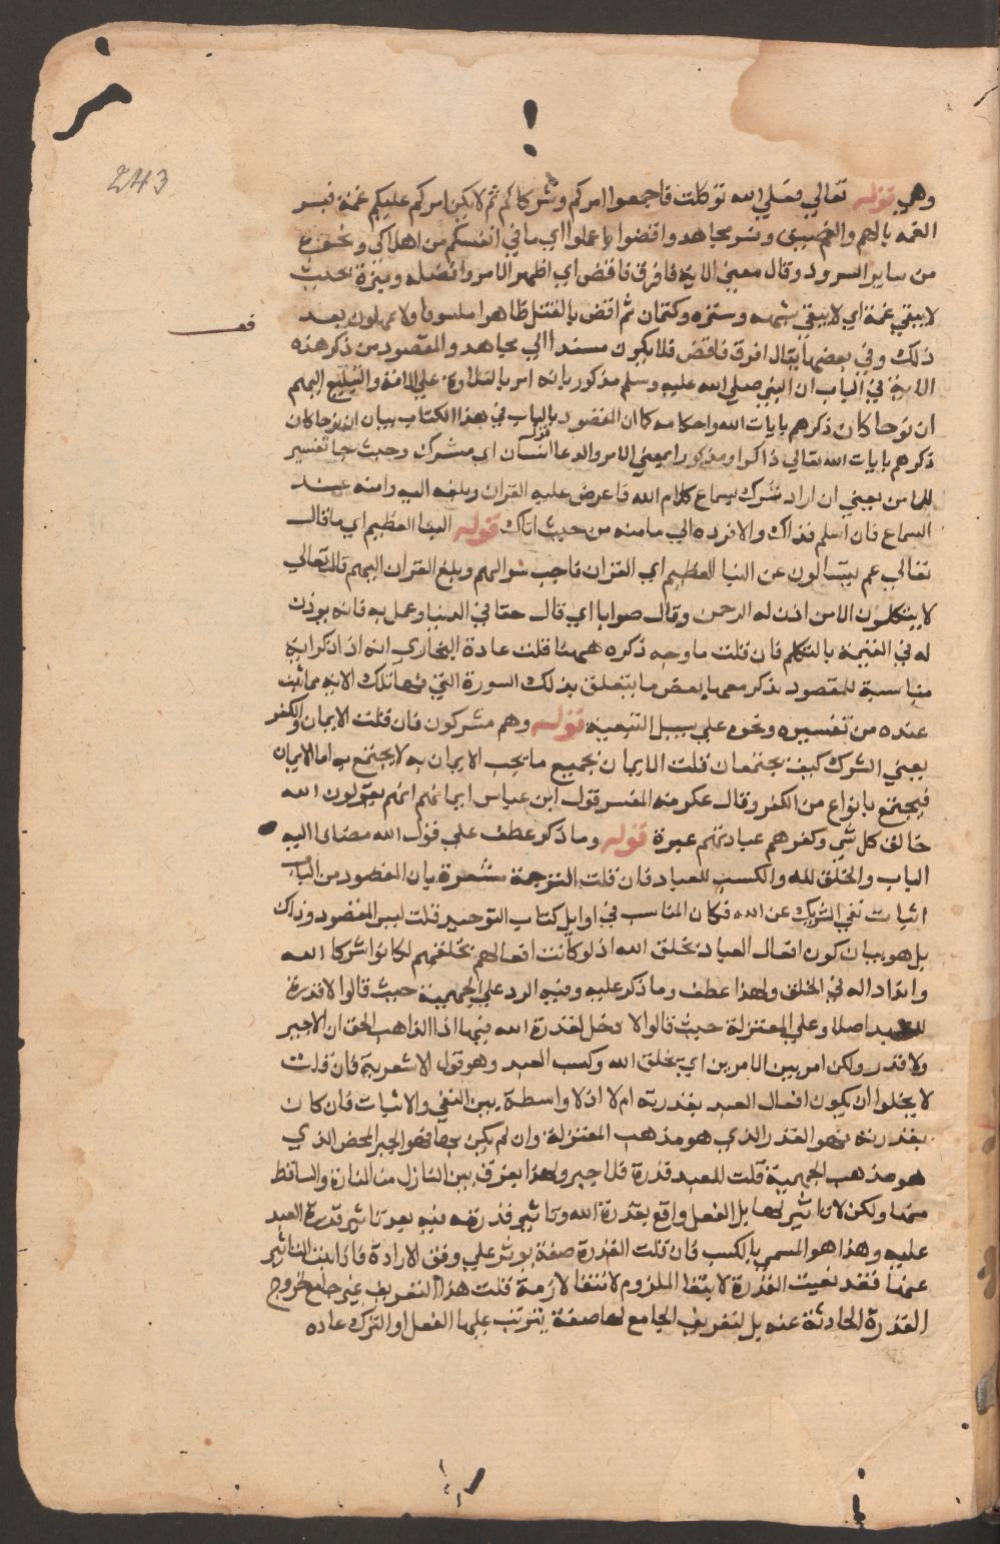 243
وهي قوله تعالي فعلي الله توكلت فاجمعوا امركم وشركاكم ثم لا يكن امركم عليكم غمة فسر
الغمة بالهم والضيق وفسر مجاهد واقضوا باعملوا اي ما في انفسكم من اهلاكي ونحوه
من ساير السرور وقال معني الاية فافرق فاقض اي اظهر الامر وافصله وميزه بحيث
لا يبقي غمة اي لا يبقي شبهه وستره وكتمان ثم اقض بالقتل ظاهرا مكشوفا ولا تمهلون بعد
فصـ
ذلك وفي بعضها يقال افرق فاقض فلا يكون مسندا الي مجاهد والمقصود من ذكر هذه
الاية في الباب ان النبي صلي الله عليه وسلم مذكور بانه امر بالتلاوة علي الامة والتبليغ اليهم
ان نوحا كان ذكرهم بايات الله واحكامه كما ان المقصود بالباب في هذا الكتاب بيان ان نوحا كان
ذكرهم بايات الله تعالي ذاكرا ومذكورا بمعني الامر والدعا قوله انسان اي مشرك وحيث جا تفسير
للامن يعني ان اراد مشرك سماع كلام الله فاعرض عليه القران وبلغه اليه وامنه عند
السماع فان اسلم فذاك والا فرده الي مامنه من حيث اتاك قوله النبا العظيم اي ما قال
تعالي عم يتسالون عن النبا العظيم اي القران فاجب سوالهم وبلغ القران اليهم قال تعالي
لا يتكلمون الا من اذن له الرحمن وقال صوابا اي قال حقا في الدنيا وعمل به فانه يوذن
له في القيمة بالتكلم فان قلت ما وجه ذكره ههنا قلت عادة البخاري انه اذا ذكر اية
مناسبة للمقصود يذكر معها بعض ما يتعلق بذلك السورة التي فيها تلك الاية مما ثبت
عنده من تفسيره ونحوه علي سبيل التبعية قوله وهم مشركون فان قلت الايمان والكفر
يعني الشرك كيف يجتمعان قلت الايمان بجميع ما يجب الايمان به لا يجتمع به اما الايمان
فيجتمع بانواع من الكفر وقال عكرمة المفسر قول ابن عباس ايمانهم انهم يقولون الله
خالق كل شي وكفرهم عبادتهم غيره قوله وما ذكر عطف علي قول الله مضافا اليه
الباب والخلق لله والكسب للعباد فان قلت الترجمة مشعرة بان المقصود من الباب
اثبات نفي الشريك عن الله فكان المناسب في اوايل كتاب التوحيد قلت ليس المقصود ذلك
بل هو بيان كون افعال العباد بخلق الله اذ لو كانت افعالهم بخلقهم لكانوا شركا لله
واندادا له في الخلق ولهذا عطف وما ذكر عليه وفيه الرد علي الجهمية حيث قالوا لا قدرة
للعبد اصلا وعلي المعتزلة حيث قالوا لا دخل لقدرة الله فيها اذ المذاهب الحق ان لا جبر
ولا قدر ولكن امر بين الامرين اي بخلق الله وكسب العبد وهو قول الاشعرية فان قلت
لا يخلوا ان يكون افعال العبد بقدرته ام لا اذ لا واسطة بين النفي والاثبات فان كان
بقدرته فهو القدر الذي هو مذهب المعتزلة وان لم يكن بها فهو الجبر المحض الذي
هو مذهب الجهمية قلت للعبد قدرة فلا جبر ولهذا يفرق بين النازل من المنارة والساقط
منها ولكن لا تاثير لها بل الفعل واقع بقدرة الله وتاثير قدرته فيه بعد تاثير قدرة العبد
عليه وهذا هو المسمي بالكسب فان قلت القدرة صفة يوثر علي وفق الارادة فاذا نفيت التاثير
عنها فقد نفيت القدرة لانتفا الملزوم لانتفا لازمه قلت هذا التعريف غير جامع لخروج
القدرة الحادثة عنه بل التعريف الجامع لها صفة يترتب عليها الفعل او الترك عادة